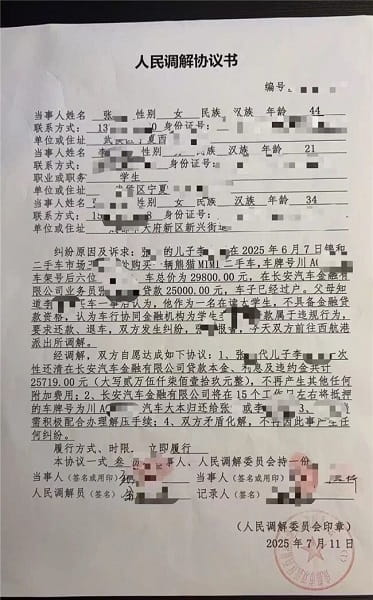 人民调解协议书
编号
当事人姓名 张 性别 女 民族 汉族 年龄 44
联系方式: 13 0 身份证号:
单位或住址 宁夏西
当事人姓名 李 汉族 年龄 21
联系方式: 身份证号:
职业或职务 学生
单位或住址 宁夏
当事人姓名 张 汉族 年龄 34
联系方式: 身份证号:
单位或住址 天府新区新兴街
纠纷原因及诉求:张 的儿子李 在2025年6月7日锦和
二手车市场 购买一辆熊猫MIMI二手车,车牌号川A
车架号后六位 车总价为29800.00元,在长安汽车金融有限
公司业务员张 贷款25000.00元,车子已经过户。父母知
道李 车一事后认为,他作为一名在读大学生,不具备金融贷
款资格,认为车行协同金融机构为学生 款属于违规行为,
要求还款、退车,双方发生纠纷, 报警,今天双方前往西航港
派出所调解。
经调解,双方自愿达成如下协议:1、张 代儿子李 次
性还清在长安汽车金融有限公司贷款本金、利息及违约金共计
25719.00元(大写贰万伍仟柒佰壹拾玖元整),不再产生其他任何
附加费用;2、长安汽车金融有限公司将在15个工作日左右将抵押
的车牌号为川A 汽车大本归还给张 或李
需积极配合办理解压手续;4、双方矛盾化解,不再因此事产生任
何纠纷。
履行方式、时限 立即履行
本协议一式 叁 事人、人民调解委员会持一份。
当事人(签名或用印) 当事人(签名或用印)
人民调解员(签名) 记录人(签名)
(人民调解委员会印章)
2025年7月11日